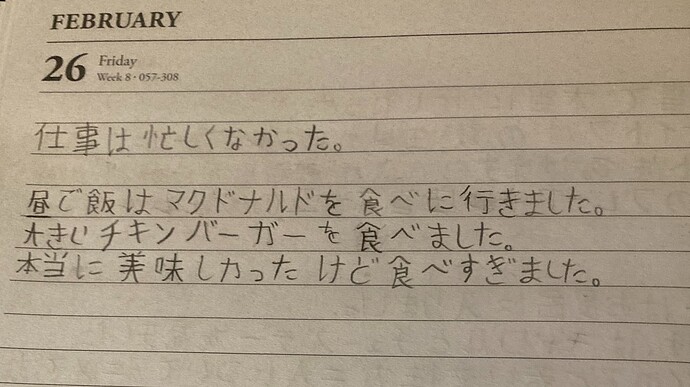 FEBRUARY
26 Friday
Week 8 · 057-308
仕事は忙しくなかった。
昼ご飯はマクドナルドを食べに行きました。
大きいチキンバーガーを食べました。
本当に美味しかったけど食べすぎました。